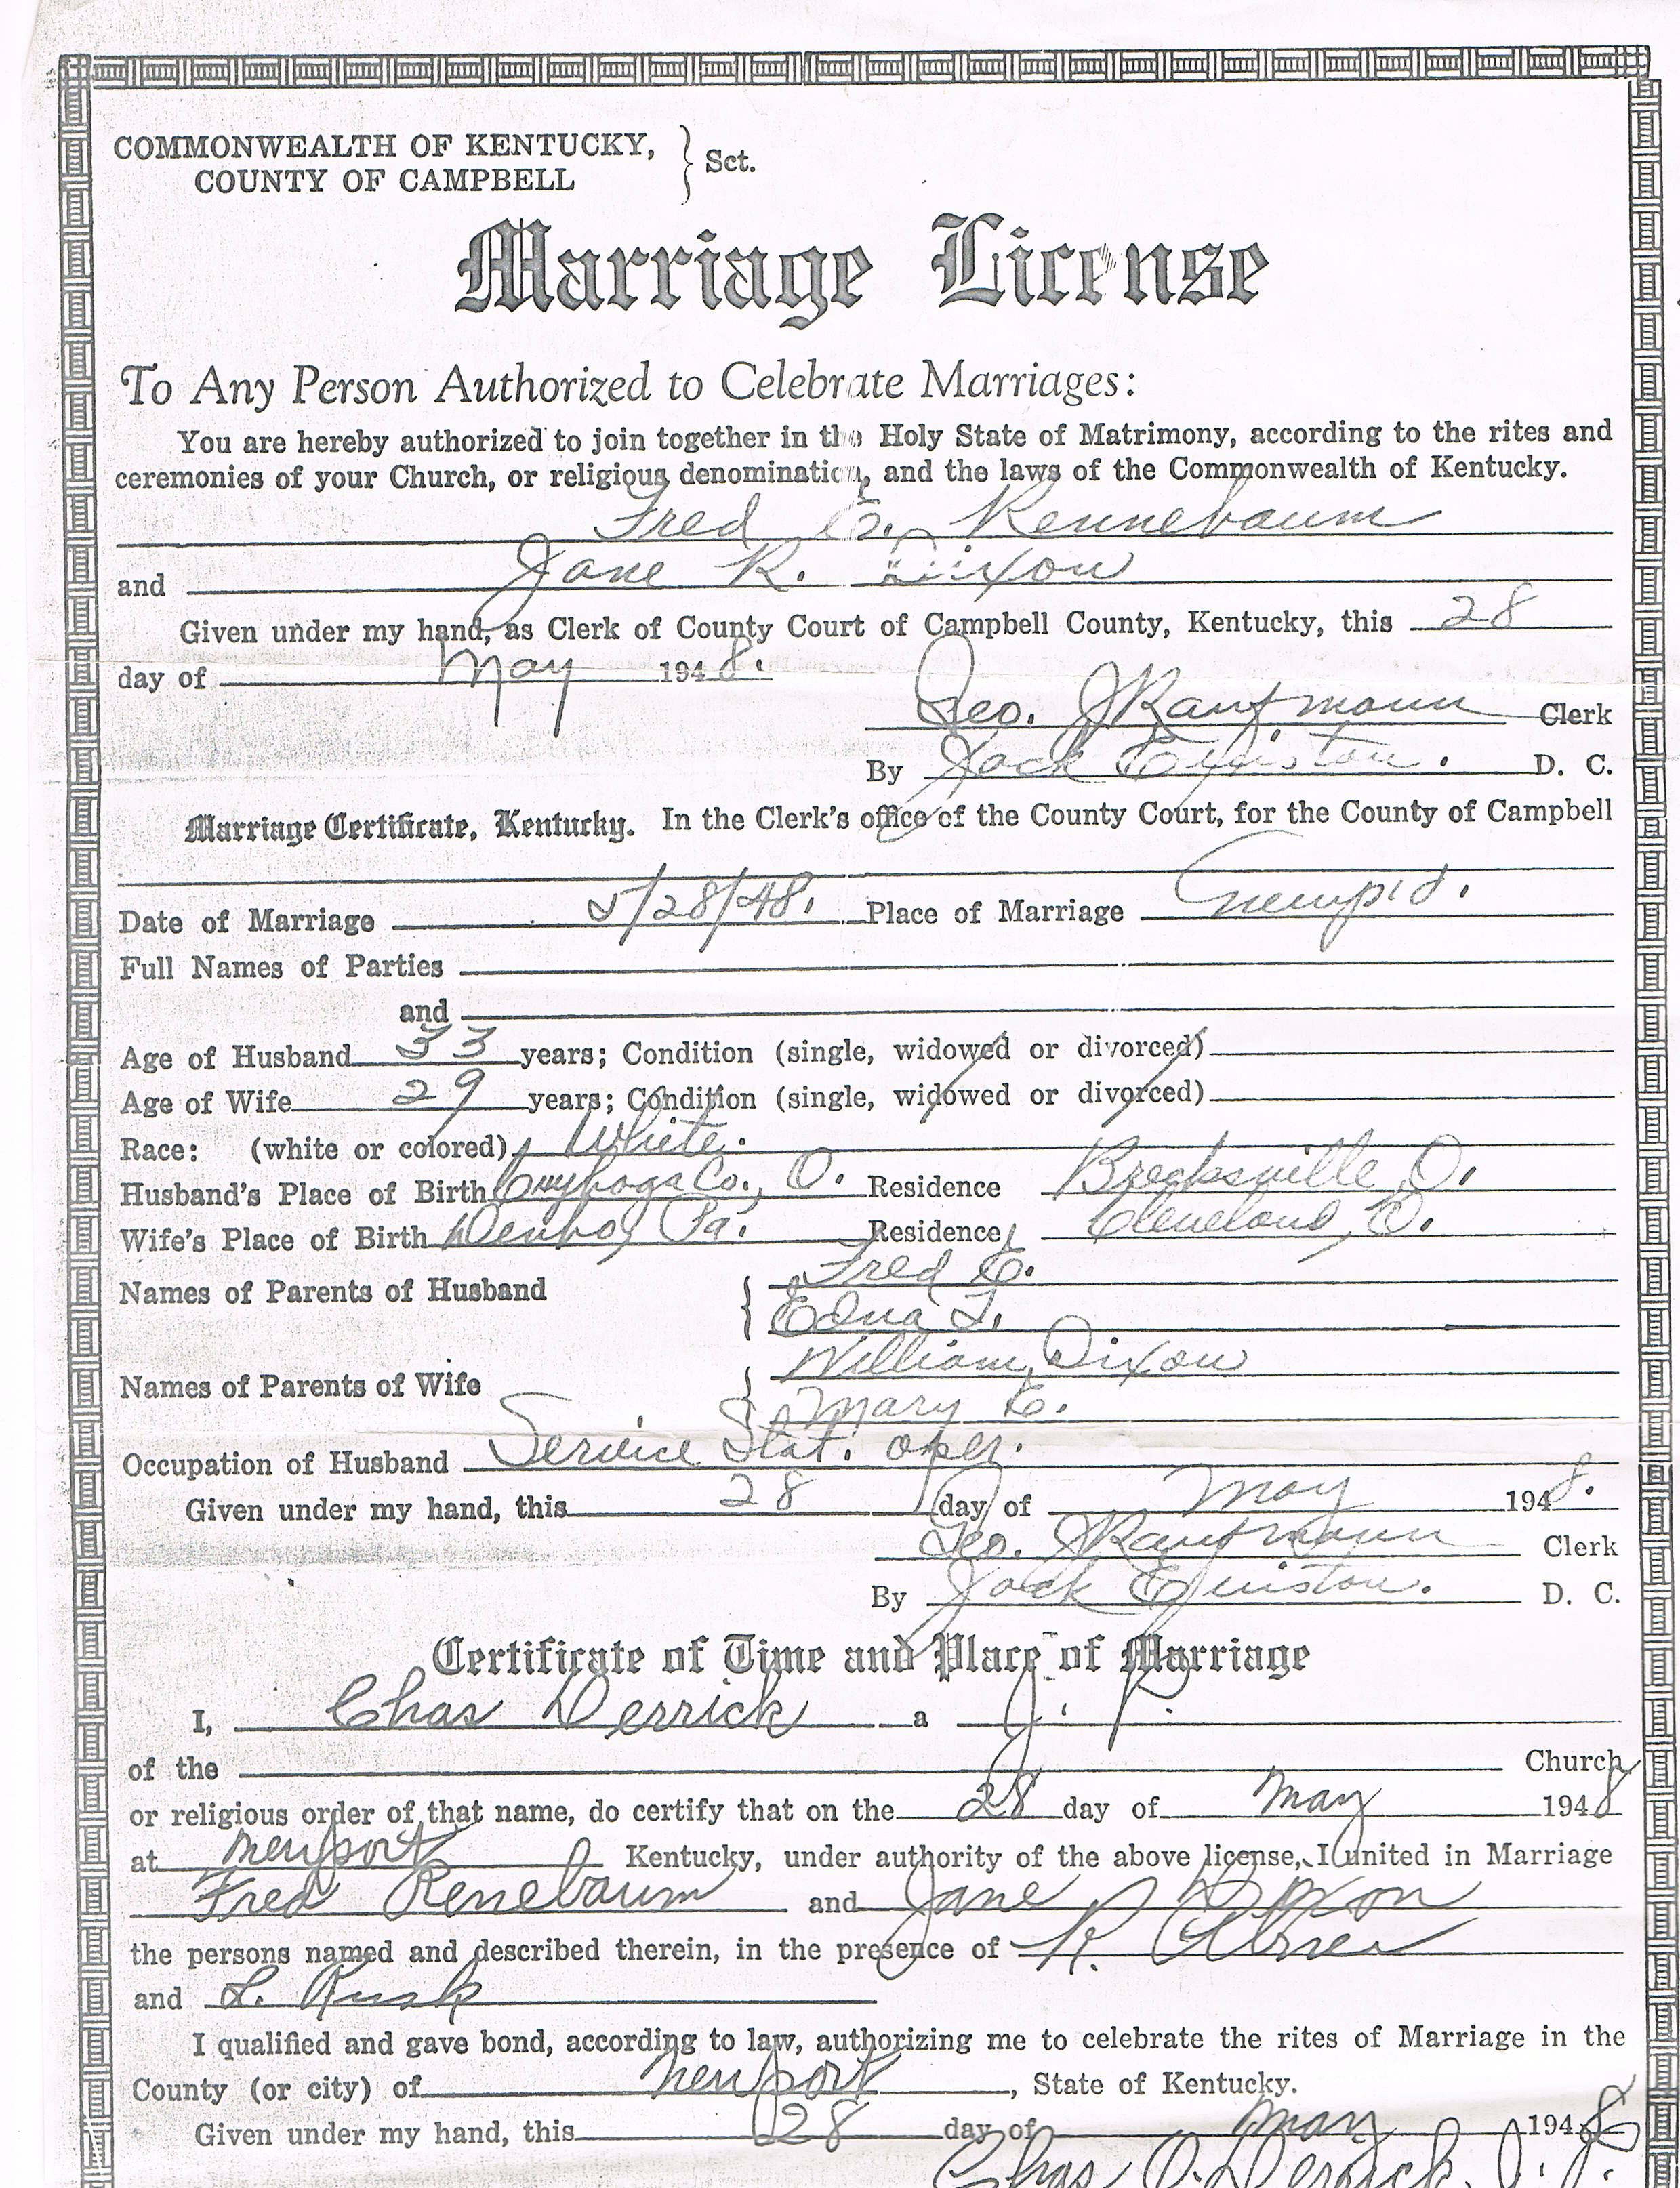 COMMONWEALTH OF KENTUCKY,
COUNTY OF CAMPBELL } Sct.
Marriage License
To Any Person Authorized to Celebrate Marriages:
You are hereby authorized to join together in the Holy State of Matrimony, according to the rites and
ceremonies of your Church, or religious denomination, and the laws of the Commonwealth of Kentucky.
Fred E. Rennebaum
and Jane R. Dixon
Given under my hand, as Clerk of County Court of Campbell County, Kentucky, this 28
day of May 1948.
Geo. J Kaufmann Clerk
By Jack D. C.
Marriage Certificate, Kentucky. In the Clerk's office of the County Court, for the County of Campbell
Date of Marriage 5/28/48. Place of Marriage
Full Names of Parties
and
Age of Husband 33 years; Condition (single, widowed or divorced)
Age of Wife 29 years; Condition (single, widowed or divorced)
Race: (white or colored) White.
Husband's Place of Birth Cuyhoga Co., O. Residence Brecksville, O.
Wife's Place of Birth Denbo, Pa. Residence Cleveland, O.
Names of Parents of Husband { Fred E.
Edna L.
Names of Parents of Wife { William Dixon
Mary E.
Occupation of Husband Service Stat. oper.
Given under my hand, this 28 day of May 1948.
Geo. J Kaufmann Clerk
By Jack D. C.
Certificate of Time and Place of Marriage
I, Chas Derrick a J. P.
of the Church
or religious order of that name, do certify that on the 28 day of May 1948
at Newport Kentucky, under authority of the above license, I united in Marriage
Fred Renebaum and Jane Dixon
the persons named and described therein, in the presence of R.
and L. Rusk
I qualified and gave bond, according to law, authorizing me to celebrate the rites of Marriage in the
County (or city) of Newport, State of Kentucky.
Given under my hand, this 28 day of May 1948
Chas Derrick, J. P.